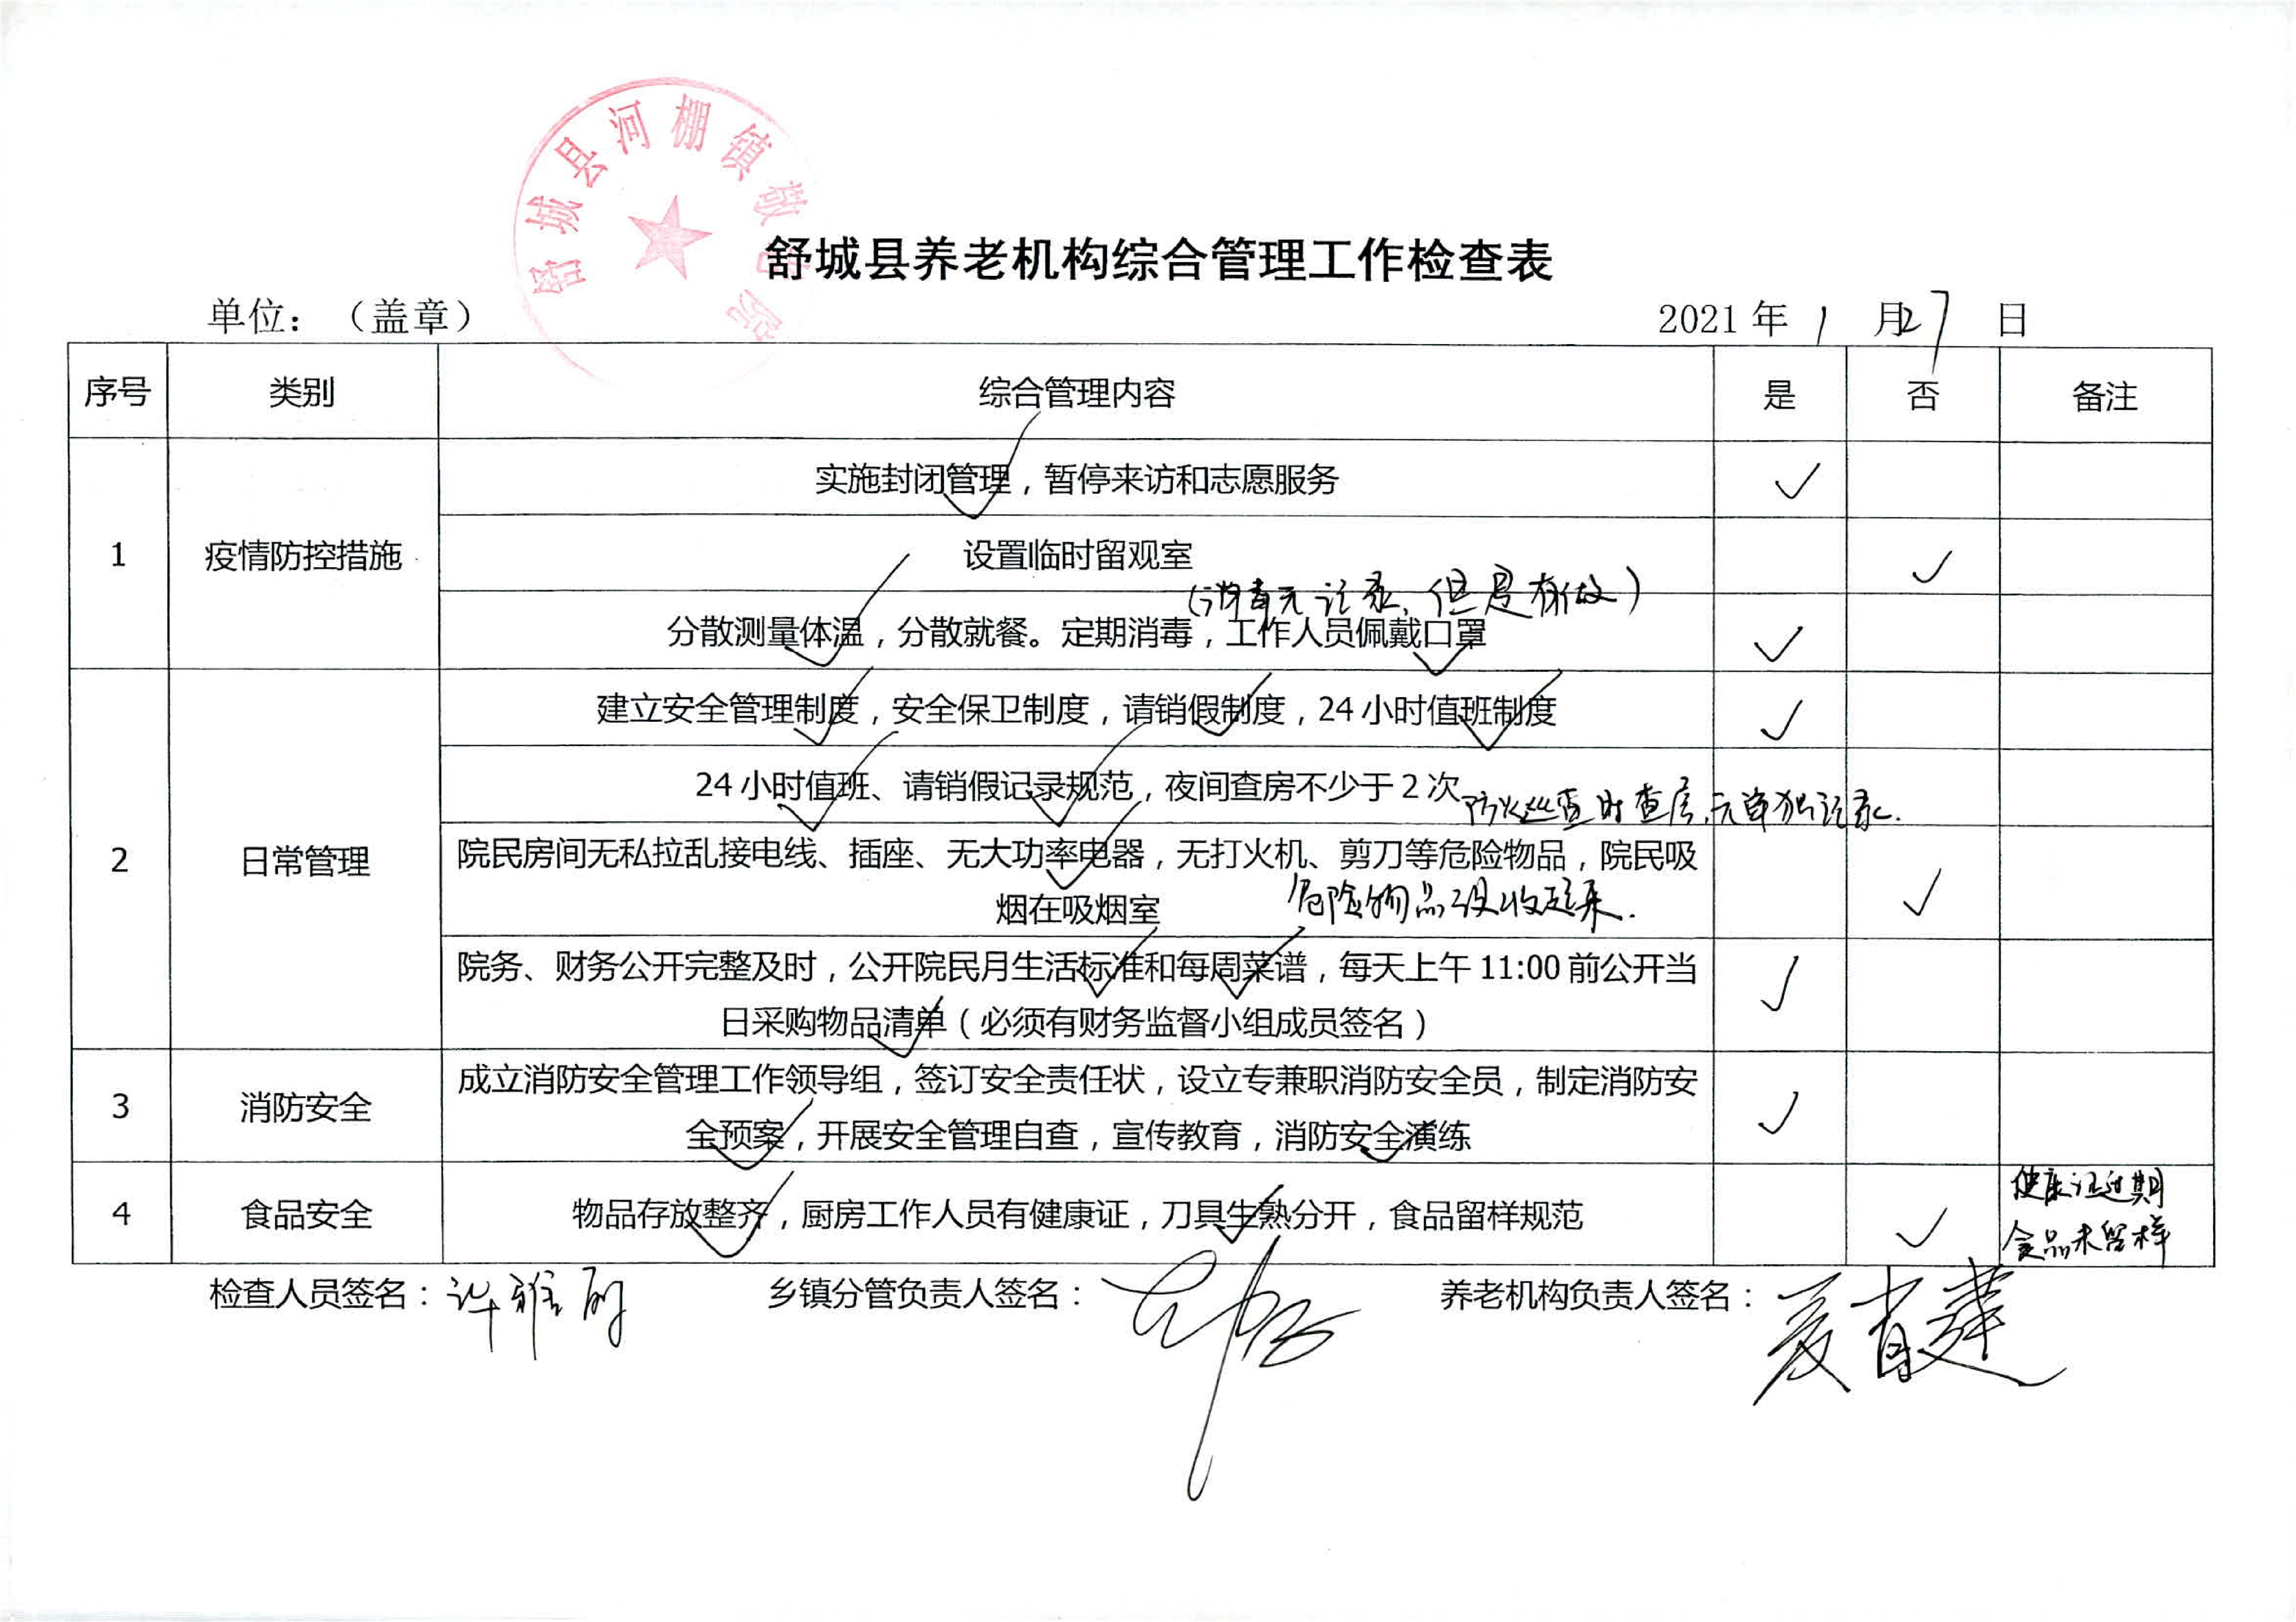 舒城县河棚镇敬老院
舒城县养老机构综合管理工作检查表
单位：（盖章） 2021 年 1 月 27 日
序号 类别 综合管理内容 是 否 备注
1 疫情防控措施
实施封闭管理，暂停来访和志愿服务 ✓
设置临时留观室 ✓
（消毒无记录，但是有做）
分散测量体温，分散就餐。定期消毒，工作人员佩戴口罩 ✓
2 日常管理
建立安全管理制度，安全保卫制度，请销假制度，24 小时值班制度 ✓
24 小时值班、请销假记录规范，夜间查房不少于 2 次 防火巡查时查房，无单独记录.
院民房间无私拉乱接电线、插座、无大功率电器，无打火机、剪刀等危险物品，院民吸
烟在吸烟室 危险物品没收起来. ✓
院务、财务公开完整及时，公开院民月生活标准和每周菜谱，每天上午 11:00 前公开当
日采购物品清单（必须有财务监督小组成员签名） ✓
3 消防安全
成立消防安全管理工作领导组，签订安全责任状，设立专兼职消防安全员，制定消防安
全预案，开展安全管理自查，宣传教育，消防安全演练 ✓
4 食品安全
物品存放整齐，厨房工作人员有健康证，刀具生熟分开，食品留样规范 ✓
健康证过期
食品未留样
检查人员签名： 许雅 乡镇分管负责人签名： 养老机构负责人签名： 夏有